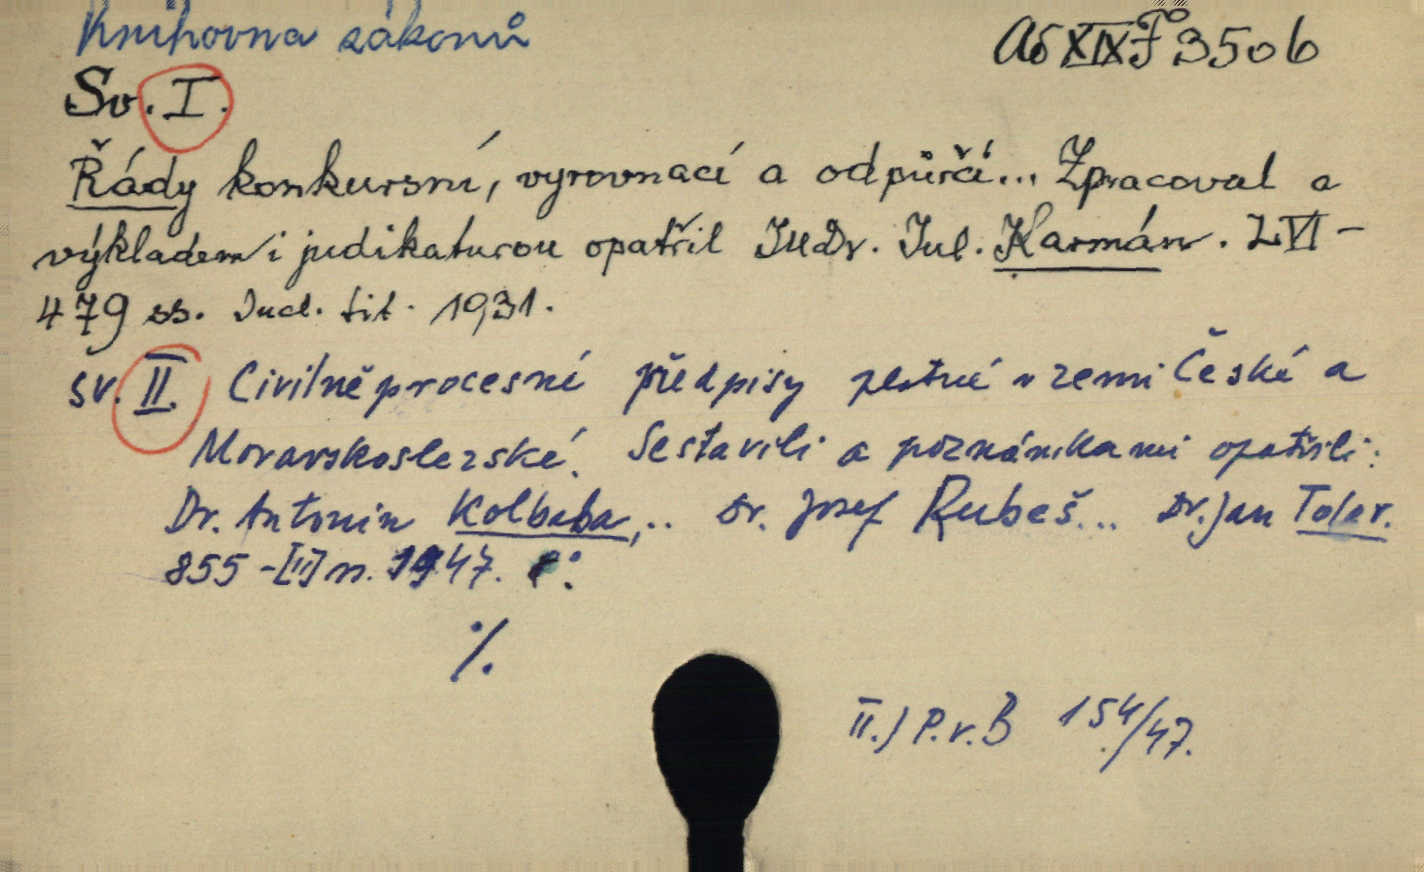 Knihovna zákonů
Ab XIX F 350 b
Sv. I.
Řády konkursní, vyrovnací a odpůrčí... Zpracoval a
výkladem i judikaturou opatřil JUDr. Jul. Karmán. LVI -
479 ss. Incl. tit. 1931.
Sv. II. Civilně procesní předpisy platné v zemi České a
Moravskoslezské. Sestavili a poznámkami opatřili:
Dr. Antonín Kolbaba,.. Dr. Josef Rubeš... Dr. Jan Toler.
855 - [II] n. 1947.
·/.
II.) P. v. B 154/47.